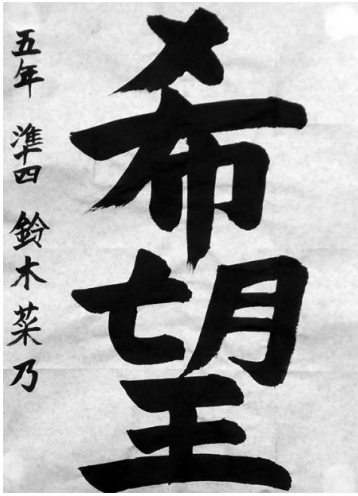 希望
五年 準四 鈴木菜乃